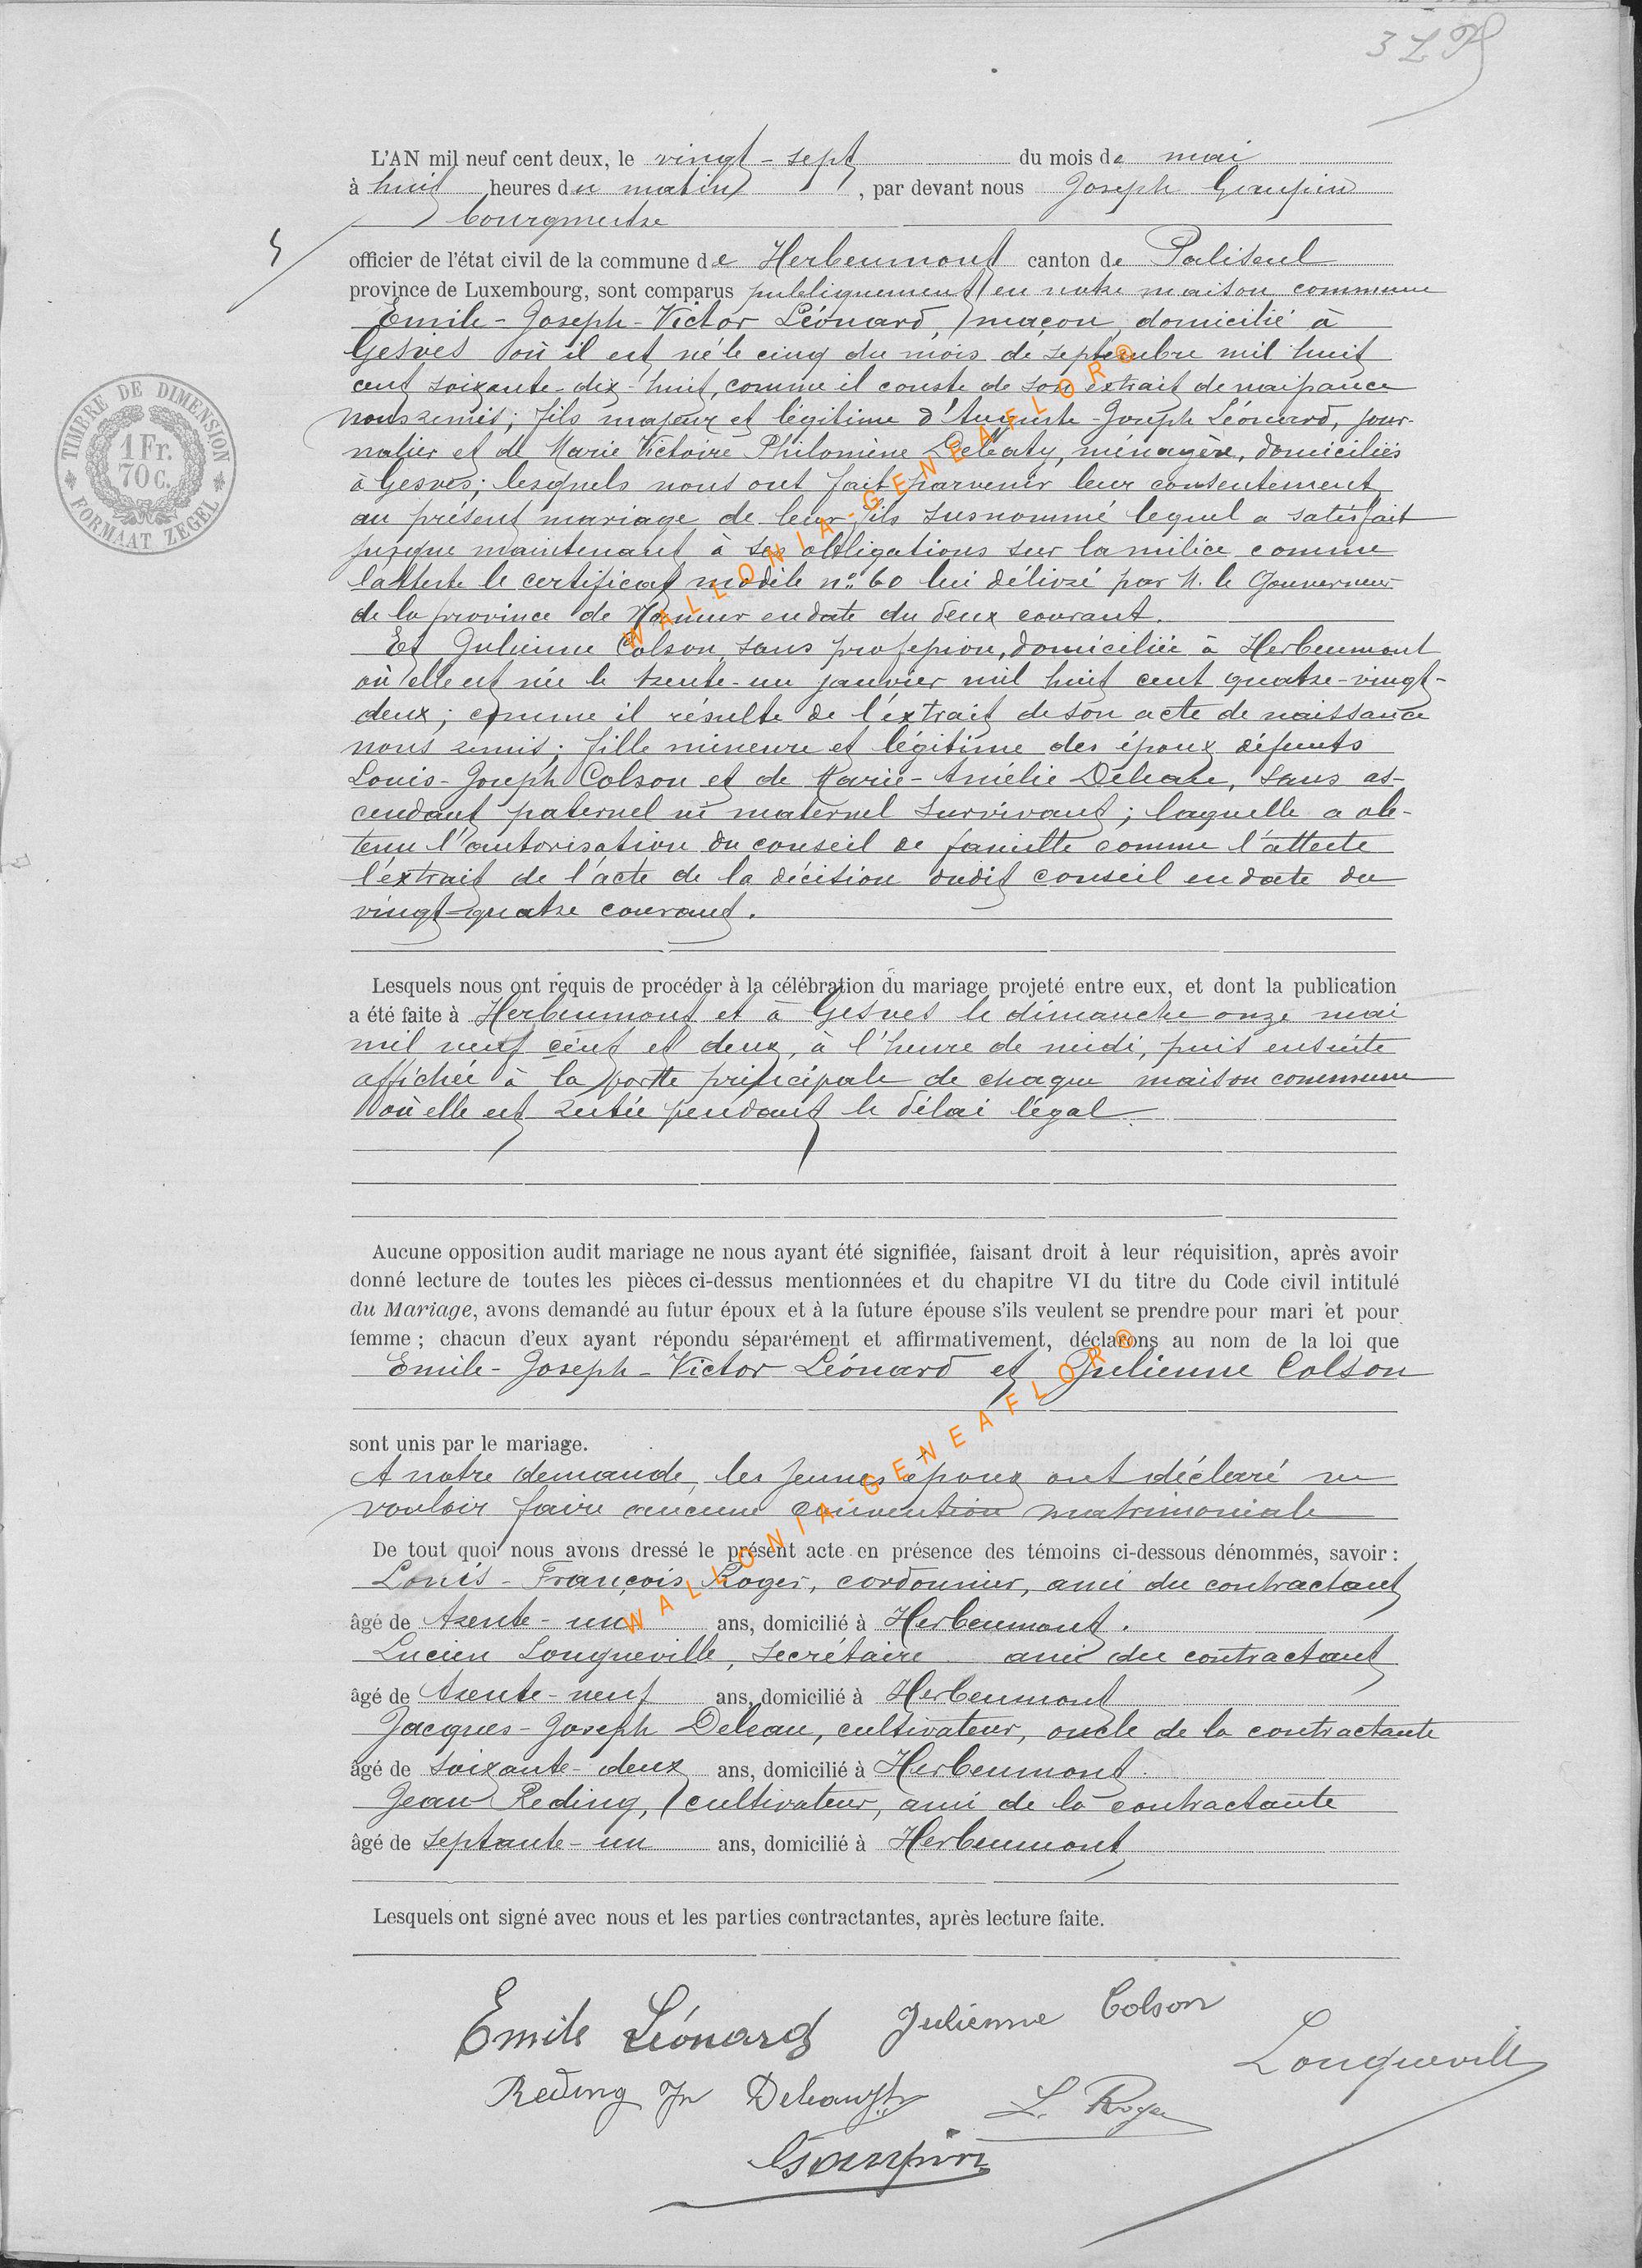 3 L P
L'AN mil neuf cent deux, le vingt-sept du mois de mai
à huit heures du matin, par devant nous Joseph Goupin
bourgmestre
5
officier de l'état civil de la commune de Herbeumont canton de Paliseul
province de Luxembourg, sont comparus publiquement en notre maison commune
Emile-Joseph-Victor Léonard, maçon, domicilié à
Gesves où il est né le cinq du mois de septembre mil huit
cent soixante-dix-huit, comme il conste de son extrait de naissance
nous remis; fils majeur et légitime d'Auguste-Joseph Léonard, jour-
nalier et de Marie Victoire Philomène, ménagère, domiciliés
à Gesves; lesquels nous ont fait parvenir leur consentement
au présent mariage de leur fils susnommé lequel a satisfait
jusque maintenant à ses obligations sur la milice comme
l'atteste le certificat modèle n° 60 lui délivré par M. le Gouverneur
de la province de Namur en date du deux courant.
Et Julienne Colson, sans profession, domiciliée à Herbeumont
où elle est née le trente-un janvier mil huit cent quatre-vingt-
deux; comme il résulte de l'extrait de son acte de naissance
nous remis; fille mineure et légitime des époux défunts
Louis-Joseph Colson et de Marie-Amélie Deleau, sans as-
cendant paternel ni maternel survivant; laquelle a ob-
tenu l'autorisation du conseil de famille comme l'atteste
l'extrait de l'acte de la décision dudit conseil en date du
vingt-quatre courant.
TIMBRE DE DIMENSION
1 Fr.
70 C.
FORMAAT ZEGEL
Lesquels nous ont requis de procéder à la célébration du mariage projeté entre eux, et dont la publication
a été faite à Herbeumont et à Gesves le dimanche onze mai
mil neuf cent et deux, à l'heure de midi, puis ensuite
affichée à la portte principale de chaque maison commune
où elle est restée pendant le délai légal.
Aucune opposition audit mariage ne nous ayant été signifiée, faisant droit à leur réquisition, après avoir
donné lecture de toutes les pièces ci-dessus mentionnées et du chapitre VI du titre du Code civil intitulé
du Mariage, avons demandé au futur époux et à la future épouse s'ils veulent se prendre pour mari et pour
femme ; chacun d'eux ayant répondu séparément et affirmativement, déclarons au nom de la loi que
Emile-Joseph-Victor Léonard et Julienne Colson
sont unis par le mariage.
A notre demande, les jeunes époux ont déclaré ne
vouloir faire aucune convention matrimoniale
De tout quoi nous avons dressé le présent acte en présence des témoins ci-dessous dénommés, savoir :
Louis-François Roger, cordonnier, ami du contractant
âgé de trente-un ans, domicilié à Herbeumont.
Lucien Longueville, secrétaire ami du contractant
âgé de trente-neuf ans, domicilié à Herbeumont
Jacques-Joseph Deleau, cultivateur, oncle de la contractante
âgé de soixante-deux ans, domicilié à Herbeumont.
Jean Reding, cultivateur, ami de la contractante
âgé de septante-un ans, domicilié à Herbeumont
Lesquels ont signé avec nous et les parties contractantes, après lecture faite.
Emile Léonard Julienne Colson
Longueville
Reding Jn Deleau L. Roger
Goupin
WALLONIA-GENEAFLOR®
WALLONIA-GENEAFLOR®